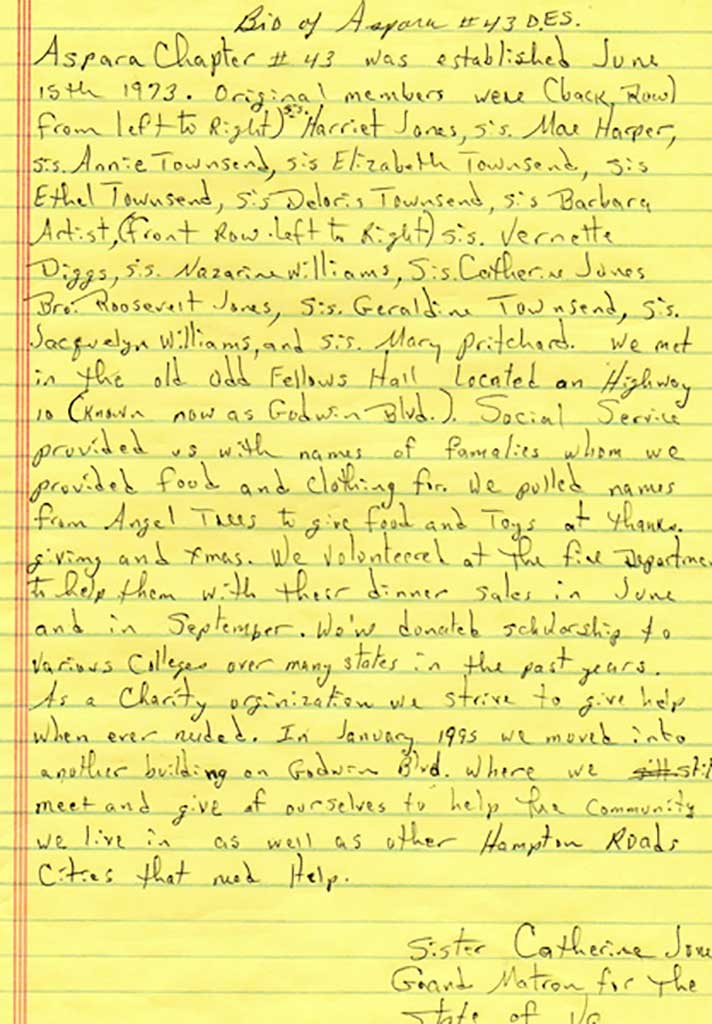 Bio of Aspara #43 O.E.S.
Aspara Chapter # 43 was established June
15th 1973. Original members were (back Row)
from left to Right) sis. Harriet Jones, sis. Mae Harper,
sis. Annie Townsend, sis Elizabeth Townsend, sis
Ethel Townsend, sis Deloris Townsend, sis Barbara
Artist, (front Row left to Right) sis. Vernette
Diggs, sis. Nazarine Williams, Sis. Catherine Jones
Bro. Roosevelt Jones, sis. Geraldine Townsend, sis.
Jacquelyn Williams, and sis. Mary Pritchard. We met
in the old Odd Fellows Hall Located on Highway
10 (known now as Godwin Blvd.). Social Service
provided us with names of famalies whom we
provided food and clothing for. We pulled names
from Angel Trees to give food and Toys at thanks.
giving and Xmas. We Volunteered at the fire Departme
to help them with their dinner sales in June
and in September. We've donated scholarship to
Various Colleges over many states in the past years.
As a Charity orginization we strive to give help
when ever needed. In January 1995 we moved into
another building on Godwin Blvd. where we still
meet and give of ourselves to help the community
we live in as well as other Hampton Roads
Cities that need Help.
Sister Catherine Jone
Grand Matron for the
State of Va